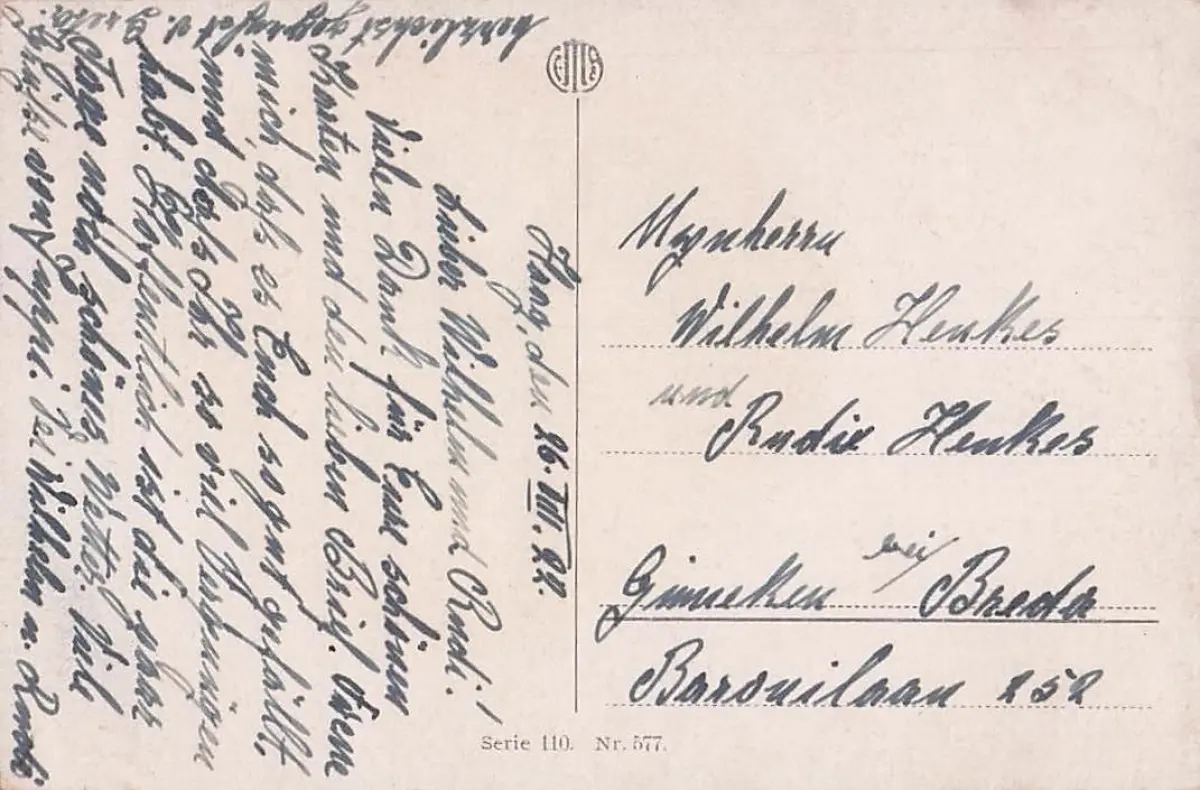 Haag, den 26. III. 22.
Lieber Wilhelm und Rudi!
Vielen Dank für Eure schönen
Karten und den lieben Brief. Freue
mich, daß es Euch so gut gefällt,
und daß Ihr so viel Vergnügen
habt. Hoffentlich ist die ganze
noch schönes Wetter. Viele
Grüße von Wilhelm u. Rudi
herzlichst gegrüßt v. Greta.
Mynherrn
Wilhelm Henkes
und
Rudie Henkes
Ginneken bei Breda
Baronielaan 252
Serie 110. Nr. 577.